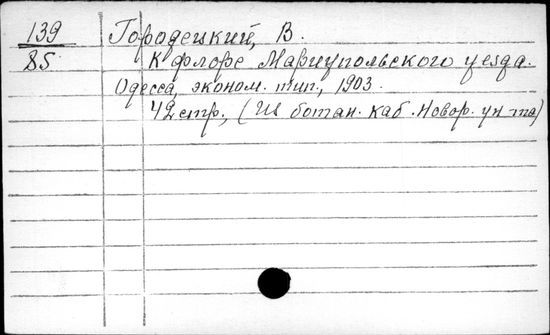 139
85
Городецкий, В.
К флоре Мариупольского уезда.
Одесса, эконом. тип., 1903.
42 стр., (Из ботан. каб. Новор. ун-та)